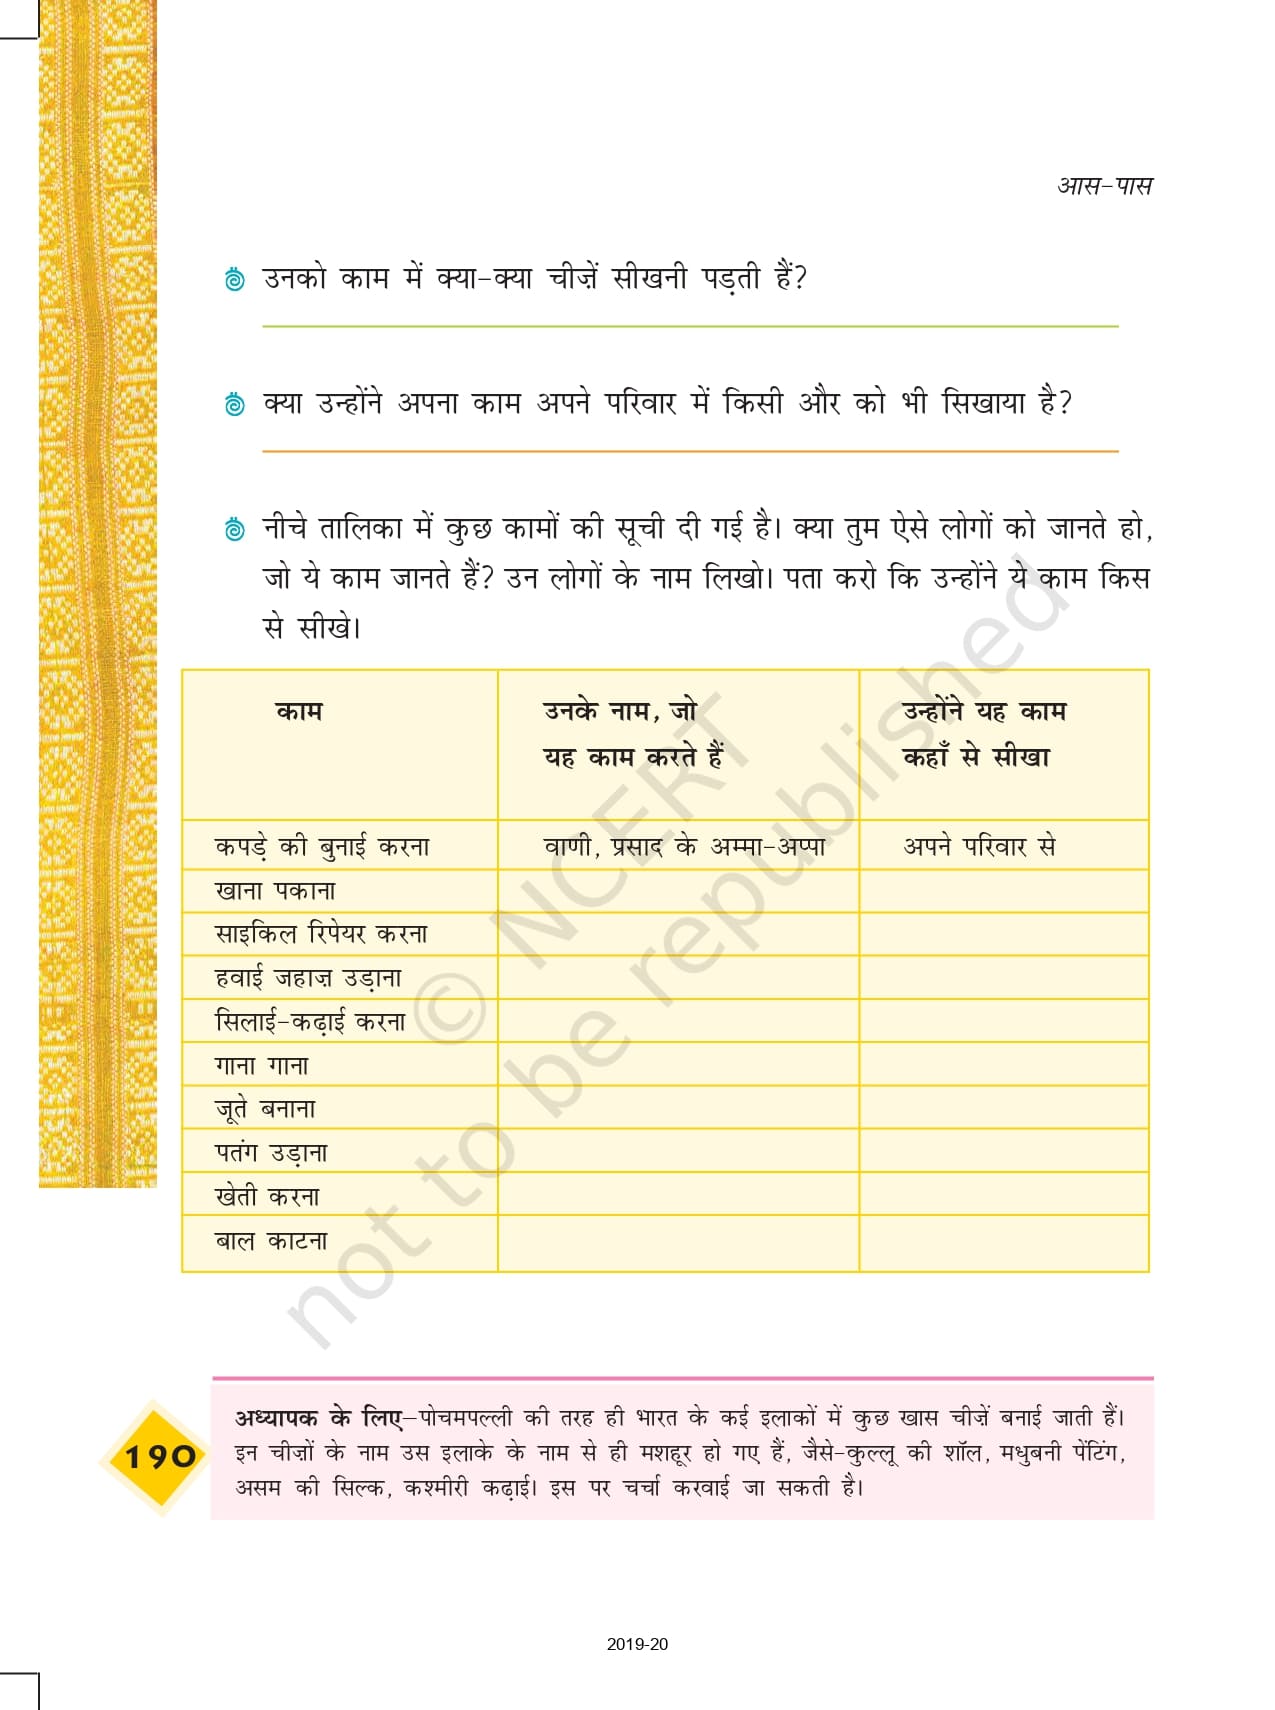 आस-पास
उनको काम में क्या-क्या चीज़ें सीखनी पड़ती हैं?
क्या उन्होंने अपना काम अपने परिवार में किसी और को भी सिखाया है?
नीचे तालिका में कुछ कामों की सूची दी गई है। क्या तुम ऐसे लोगों को जानते हो,
जो ये काम जानते हैं? उन लोगों के नाम लिखो। पता करो कि उन्होंने ये काम किस
से सीखे।
काम
उनके नाम, जो
यह काम करते हैं
उन्होंने यह काम
कहाँ से सीखा
कपड़े की बुनाई करना वाणी, प्रसाद के अम्मा-अप्पा अपने परिवार से
खाना पकाना
साइकिल रिपेयर करना
हवाई जहाज़ उड़ाना
सिलाई-कढ़ाई करना
गाना गाना
जूते बनाना
पतंग उड़ाना
खेती करना
बाल काटना
© NCERT
not to be republished
अध्यापक के लिए–पोचमपल्ली की तरह ही भारत के कई इलाकों में कुछ खास चीज़ें बनाई जाती हैं।
इन चीज़ों के नाम उस इलाके के नाम से ही मशहूर हो गए हैं, जैसे-कुल्लू की शॉल, मधुबनी पेंटिंग,
असम की सिल्क, कश्मीरी कढ़ाई। इस पर चर्चा करवाई जा सकती है।
190
2019-20